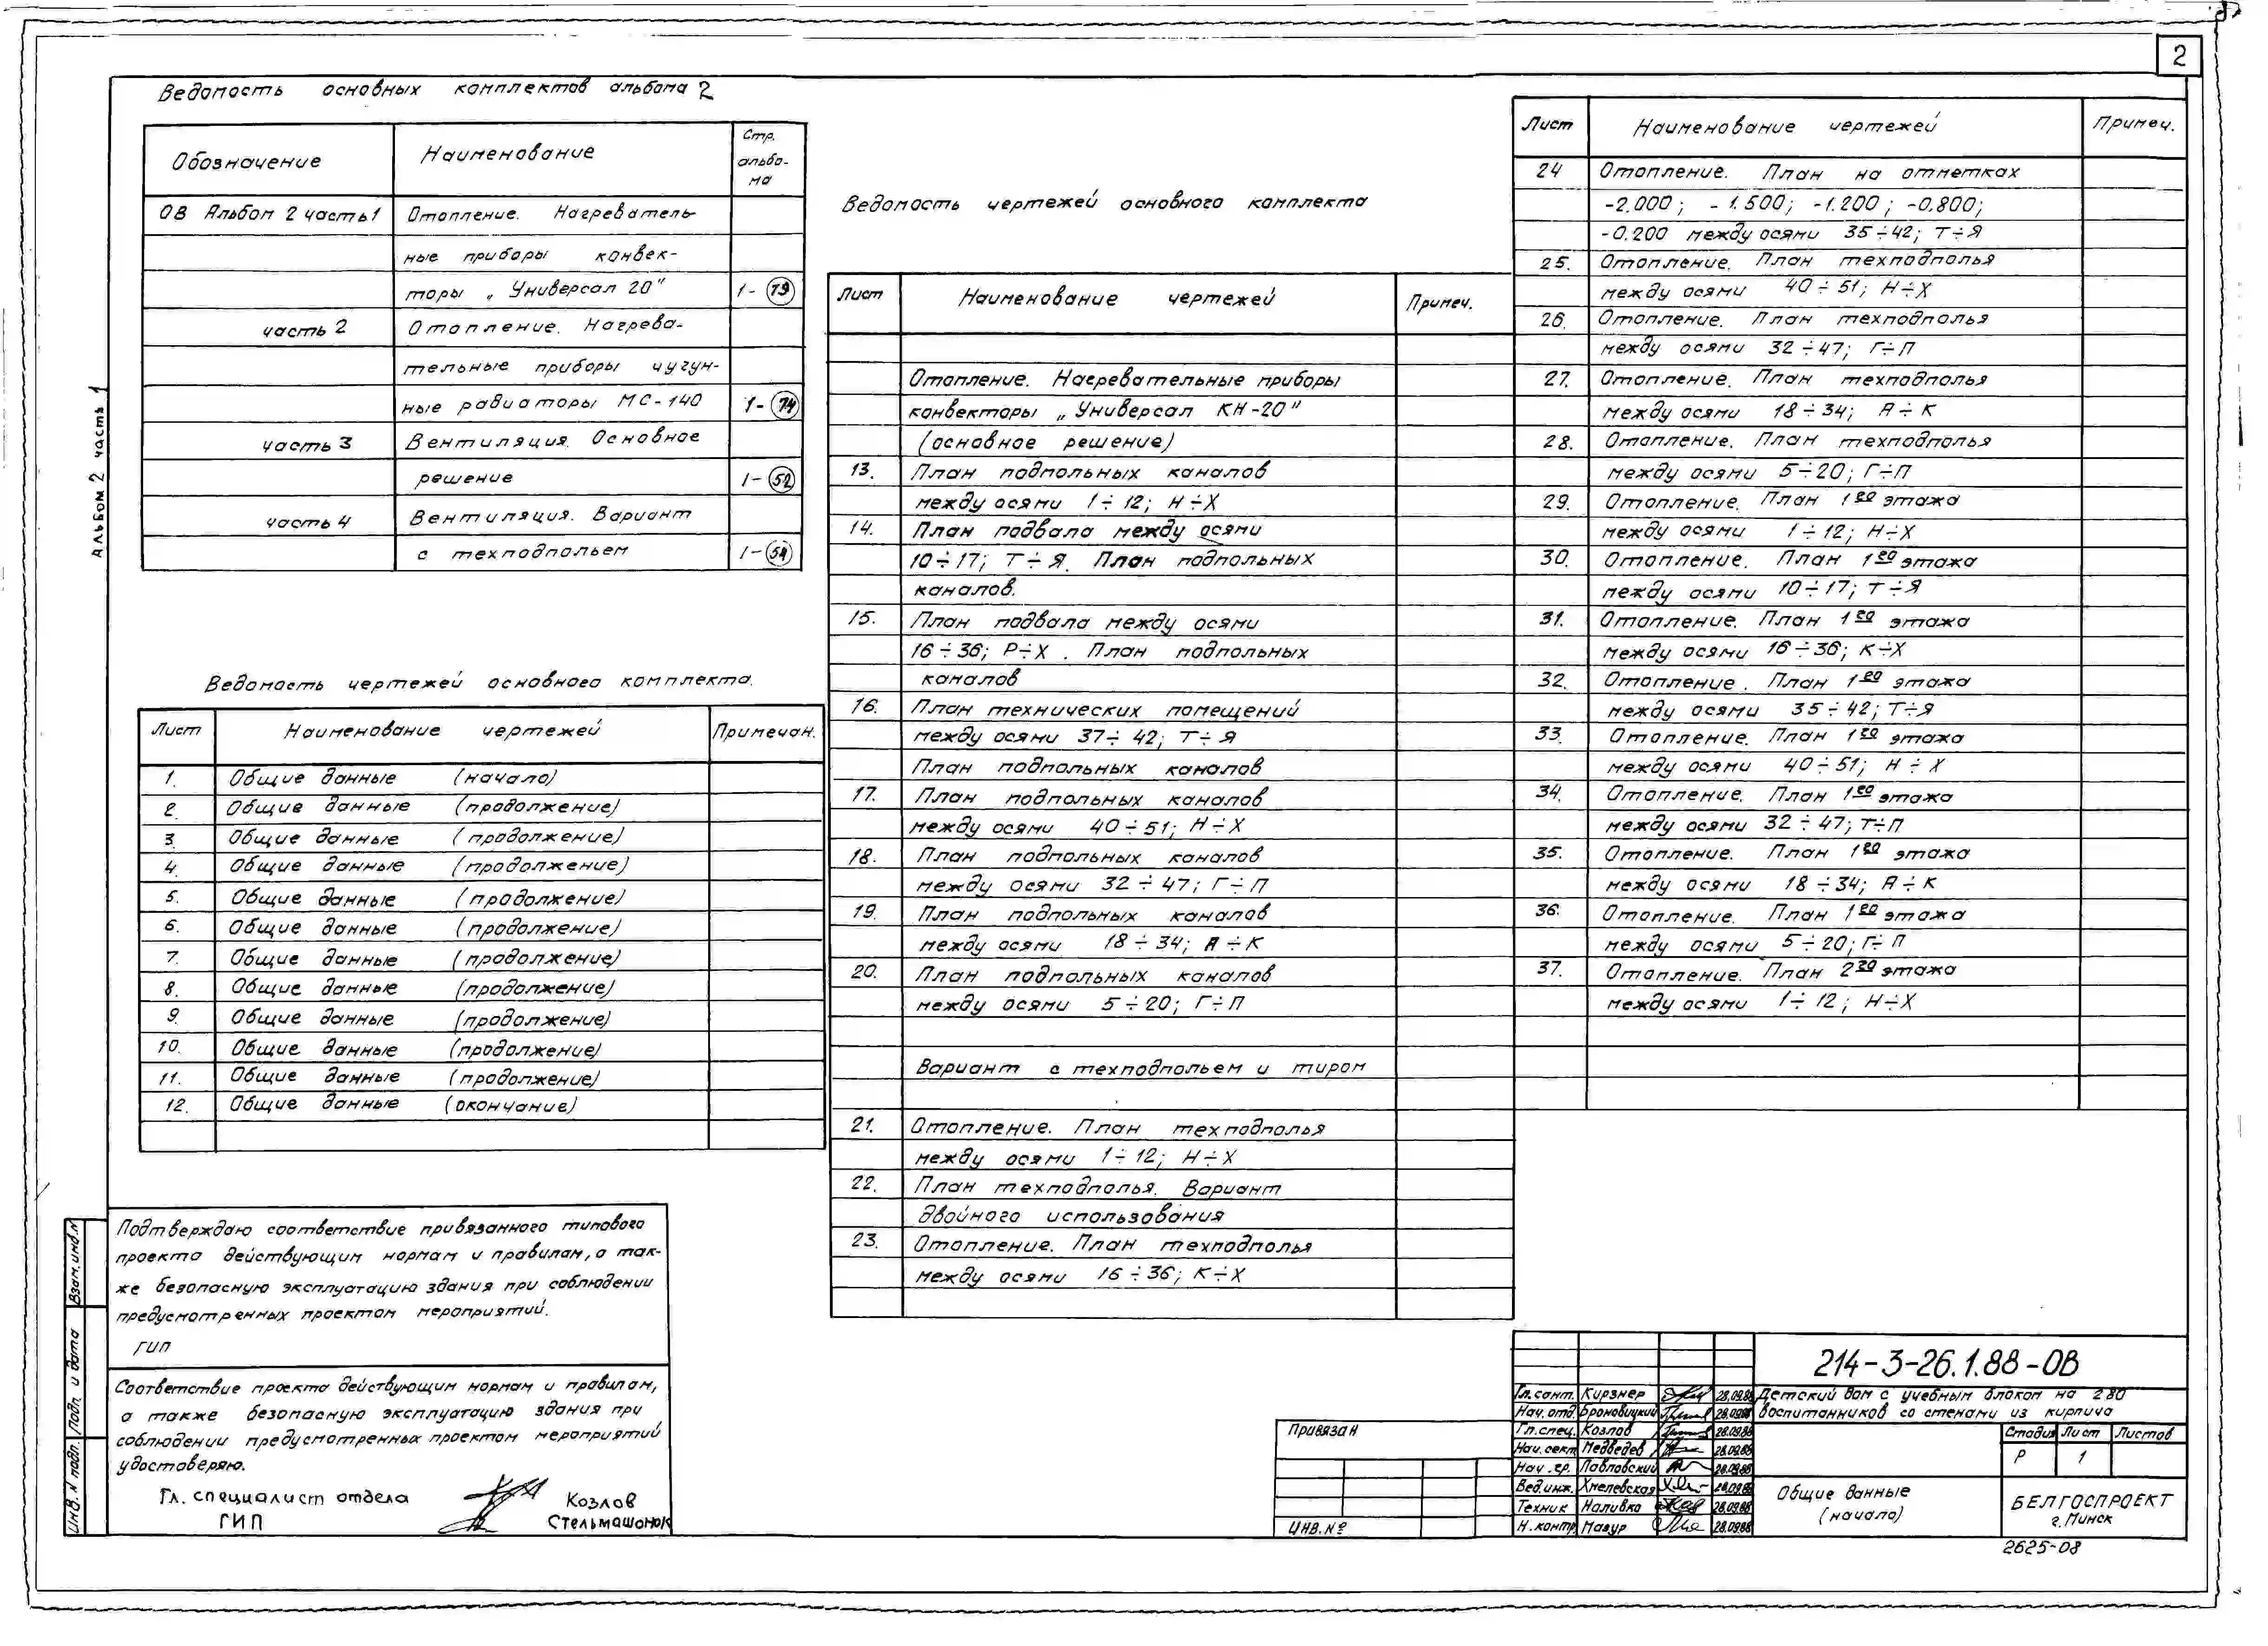 2
Альбом 2 часть 1
Ведомость основных комплектов альбома 2
Обозначение Наименование Стр. альбо-
ма
ОВ Альбом 2 часть 1 Отопление. Нагреватель-
ные приборы конвек-
торы „Универсал 20" 1-79
часть 2 Отопление. Нагрева-
тельные приборы чугун-
ные радиаторы МС-140 1-74
часть 3 Вентиляция. Основное
решение 1-52
часть 4 Вентиляция. Вариант
с техподпольем 1-54
Ведомость чертежей основного комплекта.
Лист Наименование чертежей Примечан.
1. Общие данные (начало)
2. Общие данные (продолжение)
3. Общие данные (продолжение)
4. Общие данные (продолжение)
5. Общие данные (продолжение)
6. Общие данные (продолжение)
7. Общие данные (продолжение)
8. Общие данные (продолжение)
9. Общие данные (продолжение)
10. Общие данные (продолжение)
11. Общие данные (продолжение)
12. Общие данные (окончание)
Подтверждаю соответствие привязанного типового
проекта действующим нормам и правилам, а так-
же безопасную эксплуатацию здания при соблюдении
предусмотренных проектом мероприятий.
ГИП
Соответствие проекта действующим нормам и правилам,
а также безопасную эксплуатацию здания при
соблюдении предусмотренных проектом мероприятий
удостоверяю.
Гл. специалист отдела Козлов
ГИП Стельмашонок
Взам.инв.N
Подп. и дата
Инв. N подл.
Ведомость чертежей основного комплекта
Лист Наименование чертежей Примеч.
Отопление. Нагревательные приборы
конвекторы „Универсал КН-20"
(основное решение)
13. План подпольных каналов
между осями 1÷12; Н÷Х
14. План подвала между осями
10÷17; Т÷Я. План подпольных
каналов.
15. План подвала между осями
16÷36; Р÷Х. План подпольных
каналов
16. План технических помещений
между осями 37÷42; Т÷Я
План подпольных каналов
17. План подпольных каналов
между осями 40÷51; Н÷Х
18. План подпольных каналов
между осями 32÷47; Г÷П
19. План подпольных каналов
между осями 18÷34; А÷К
20. План подпольных каналов
между осями 5÷20; Г÷П
Вариант с техподпольем и тиром
21. Отопление. План техподполья
между осями 1÷12; Н÷Х
22. План техподполья. Вариант
двойного использования
23. Отопление. План техподполья
между осями 16÷36; К÷Х
Лист Наименование чертежей Примеч.
24 Отопление. План на отметках
-2.000; -1.500; -1.200; -0.800;
-0.200 между осями 35÷42; Т÷Я
25. Отопление. План техподполья
между осями 40÷51; Н÷Х
26. Отопление. План техподполья
между осями 32÷47; Г÷П
27. Отопление. План техподполья
между осями 18÷34; А÷К
28. Отопление. План техподполья
между осями 5÷20; Г÷П
29. Отопление. План 1го этажа
между осями 1÷12; Н÷Х
30. Отопление. План 1го этажа
между осями 10÷17; Т÷Я
31. Отопление. План 1го этажа
между осями 16÷36; К÷Х
32. Отопление. План 1го этажа
между осями 35÷42; Т÷Я
33. Отопление. План 1го этажа
между осями 40÷51; Н÷Х
34. Отопление. План 1го этажа
между осями 32÷47; Т÷П
35. Отопление. План 1го этажа
между осями 18÷34; А÷К
36. Отопление. План 1го этажа
между осями 5÷20; Г÷П
37. Отопление. План 2го этажа
между осями 1÷12; Н÷Х
Привязан
ИНВ.№
214-3-26.1.88-ОВ
Гл.сант. Кирзнер 28.09.88
Нач.отд. Броновицкий 28.09.88
Гл.спец. Козлов 28.09.88
Нач.сект. Медведев 28.09.88
Нач.гр. Павловский 28.09.88
Вед.инж. Хмелевская 28.09.88
Техник Наливко 28.09.88
Н.контр. Мазур 28.09.88
Детский дом с учебным блоком на 280
воспитанников со стенами из кирпича
Стадия Лист Листов
Р 1
Общие данные
(начало)
БЕЛГОСПРОЕКТ
г.Минск
2625-08